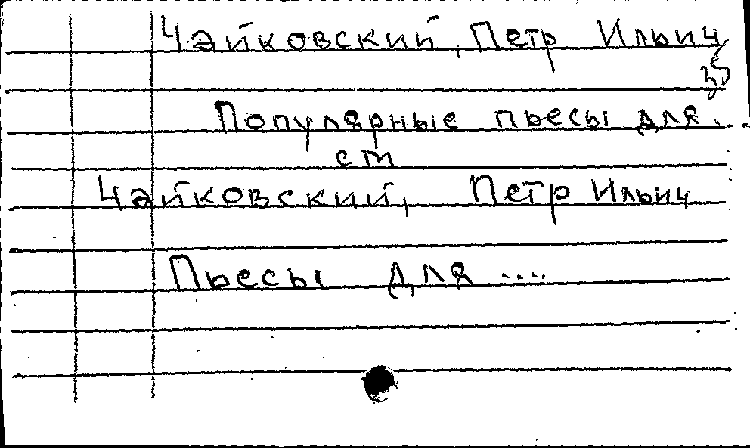 Чайковский, Петр Ильич
Популярные пьесы для..
см
Чайковский, Петр Ильич
Пьесы для ....